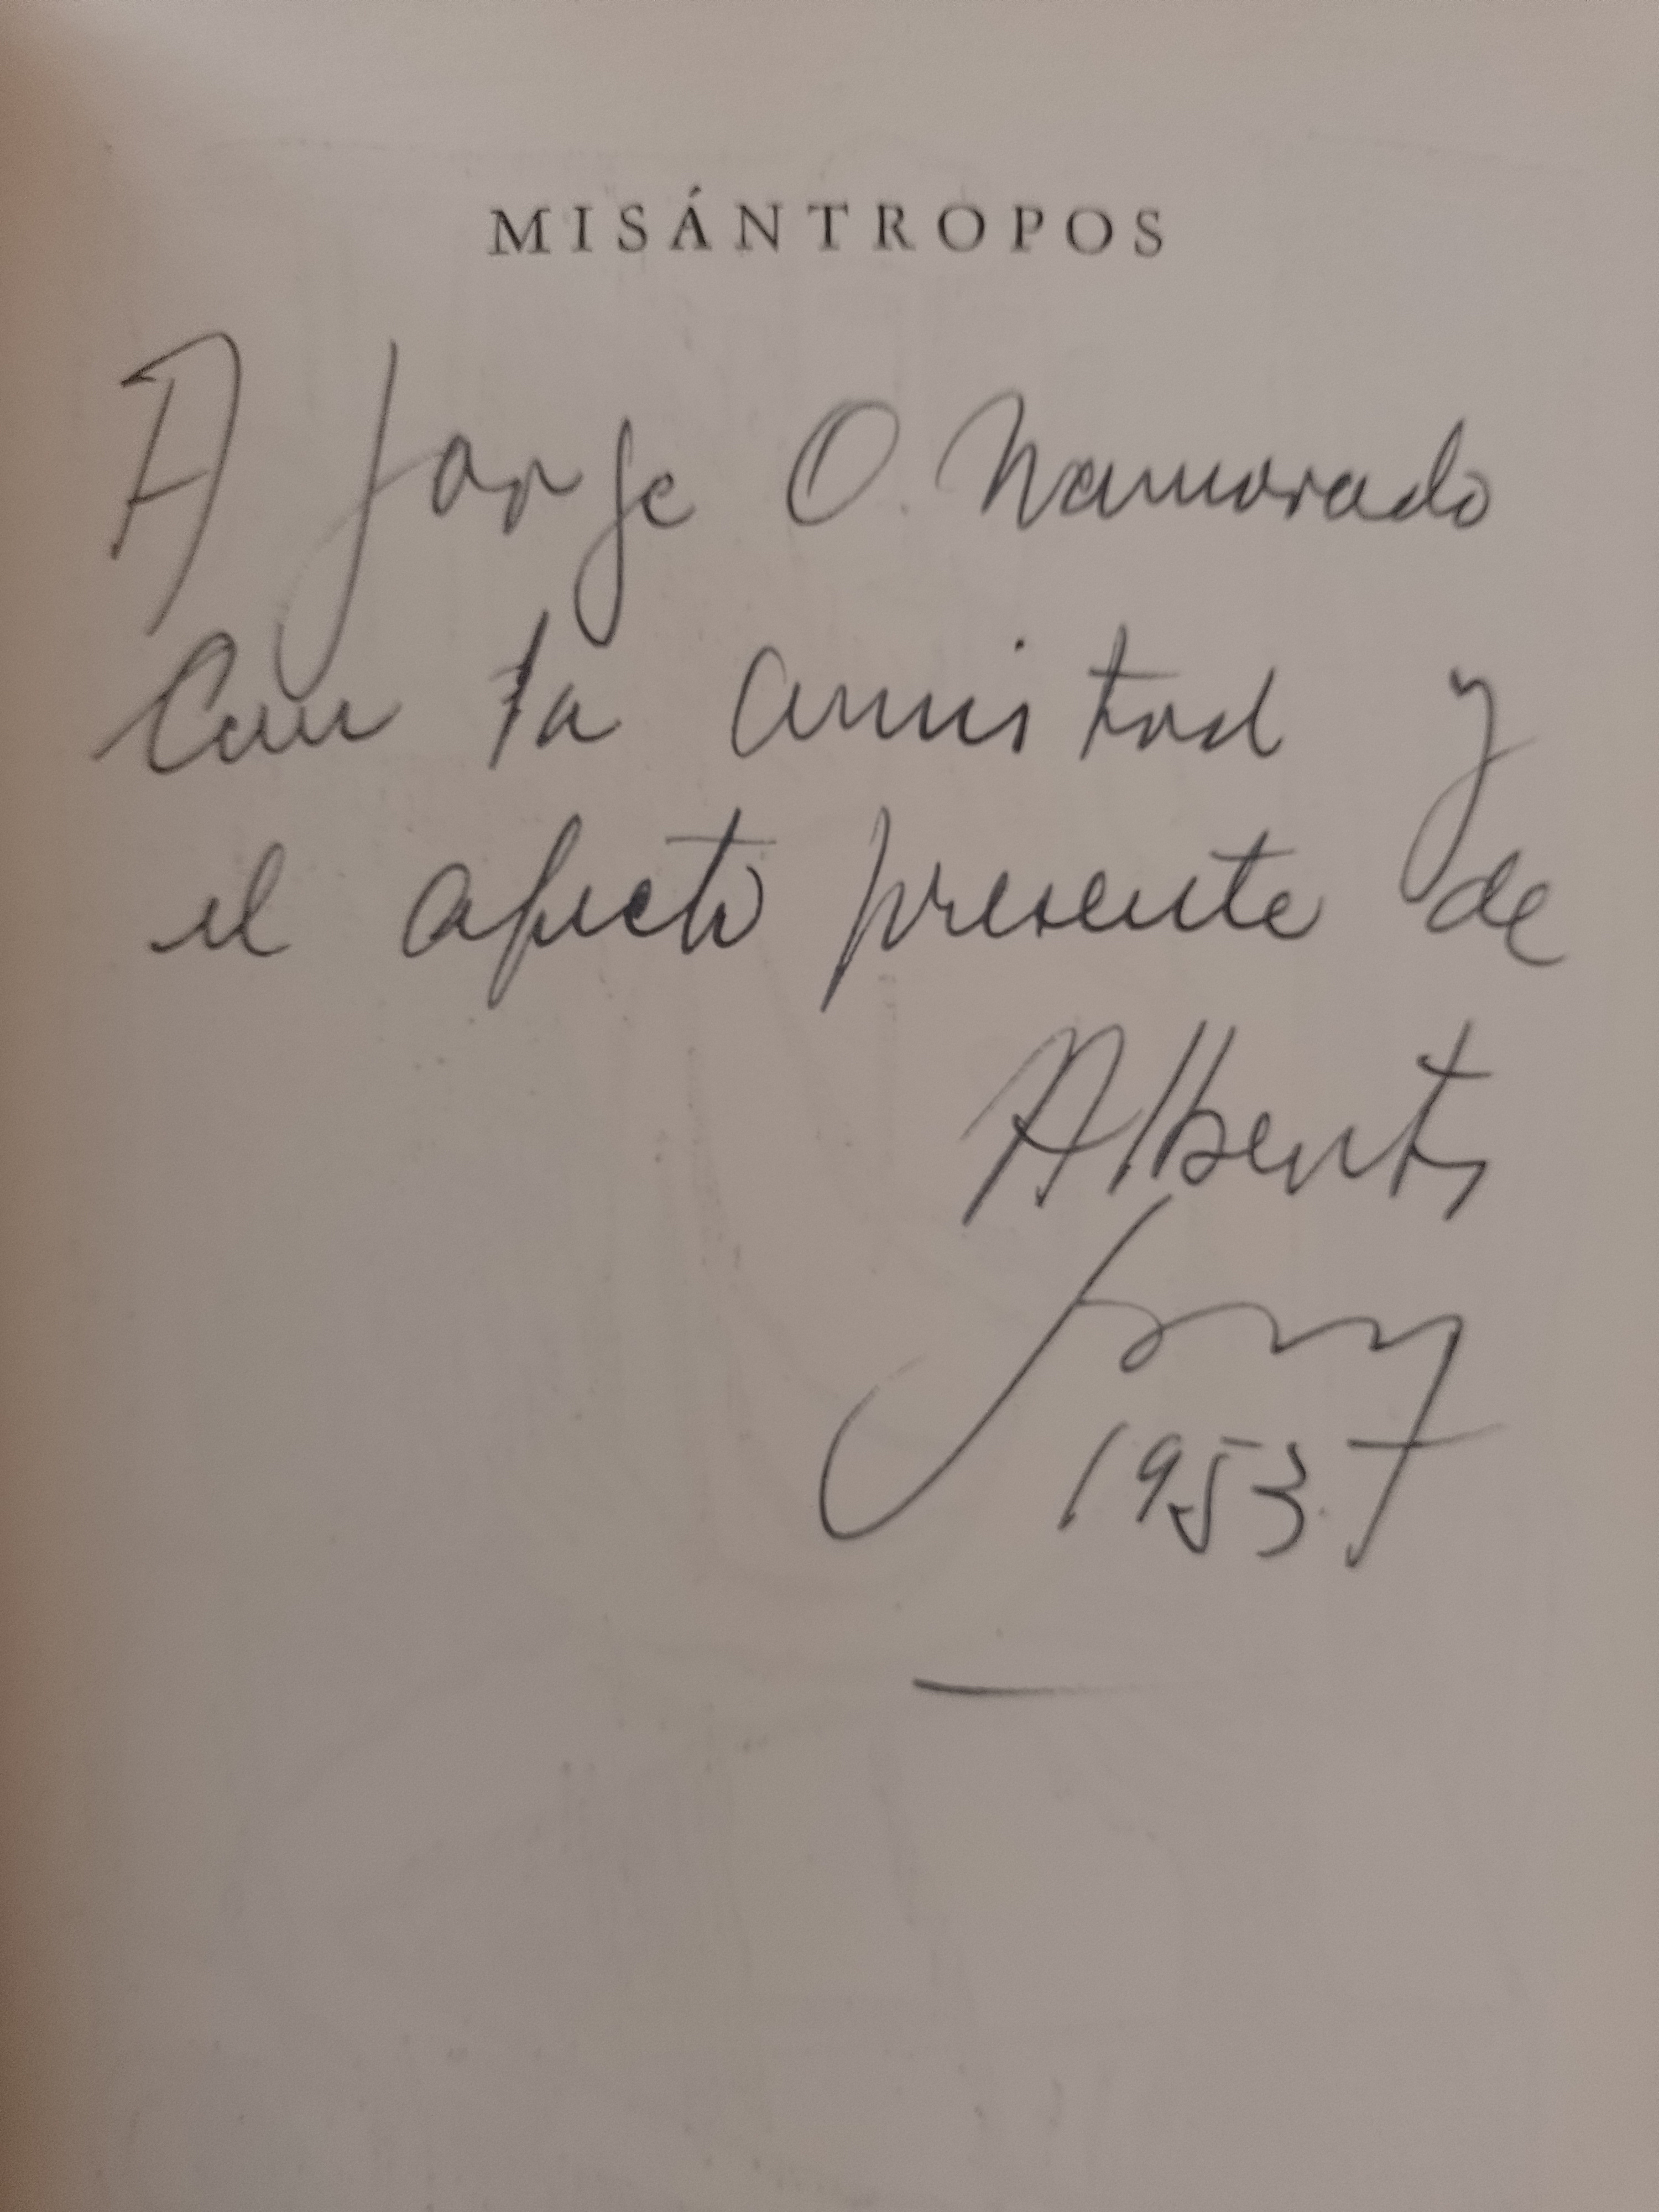 MISÁNTROPOS
A Jorge O. Namorado
Con la amistad y
el afecto presente de
Alberto
1953